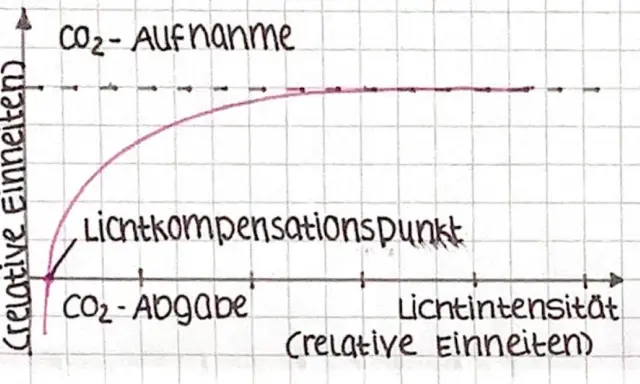 CO₂-Aufnahme
(relative Einheiten)
Lichtkompensationspunkt
CO₂-Abgabe
Lichtintensität
(relative Einheiten)